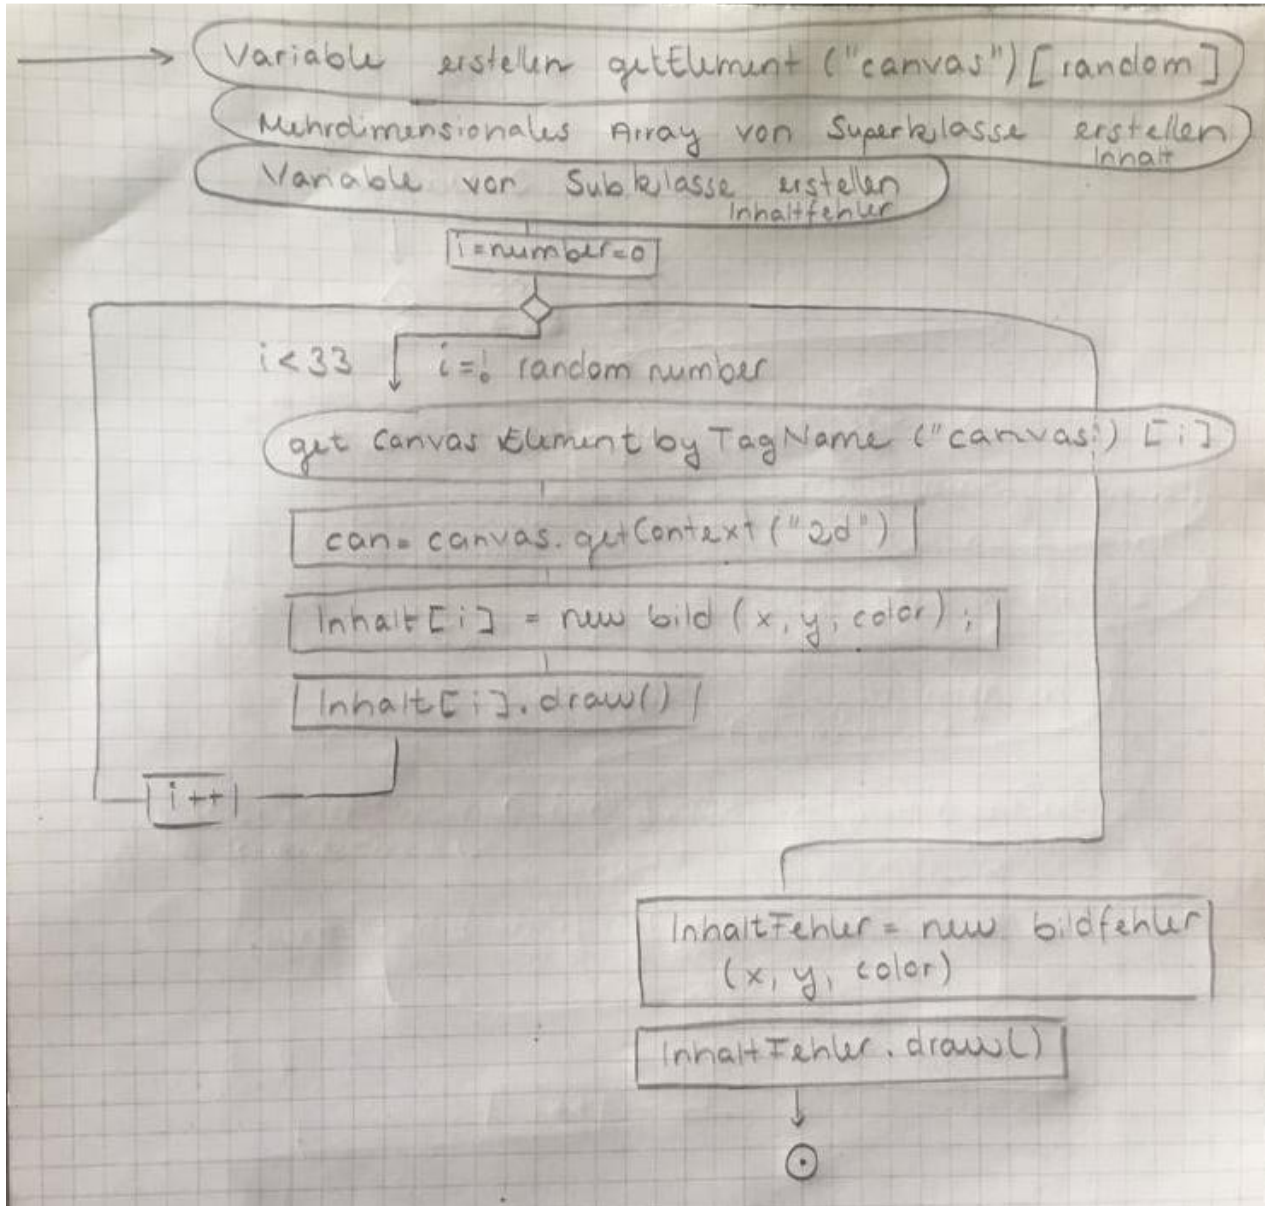 Variable erstellen getElement ("canvas") [random]
Mehrdimensionales Array von Superklasse erstellen
Inhalt
Variable von Subklasse erstellen
Inhaltfehler
i=number=0
i<33 i=! random number
get Canvas Element by TagName ("canvas") [i]
can= canvas.getContext("2d")
Inhalt[i] = new bild (x, y, color);
Inhalt[i].draw()
i++
InhaltFehler = new bildfehler
(x, y, color)
InhaltFehler.draw()